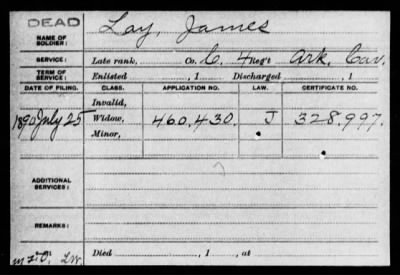 DEAD
NAME OF SOLDIER: Lay, James
SERVICE: Late rank, Co. C. 4 Reg't Ark, Cav.
TERM OF SERVICE: Enlisted , 1 Discharged , 1
DATE OF FILING. CLASS. APPLICATION NO. LAW. CERTIFICATE NO.
Invalid,
1890 July 25 Widow, 460.430. J 328.997.
Minor,
ADDITIONAL SERVICES:
REMARKS:
Died , 1 , at